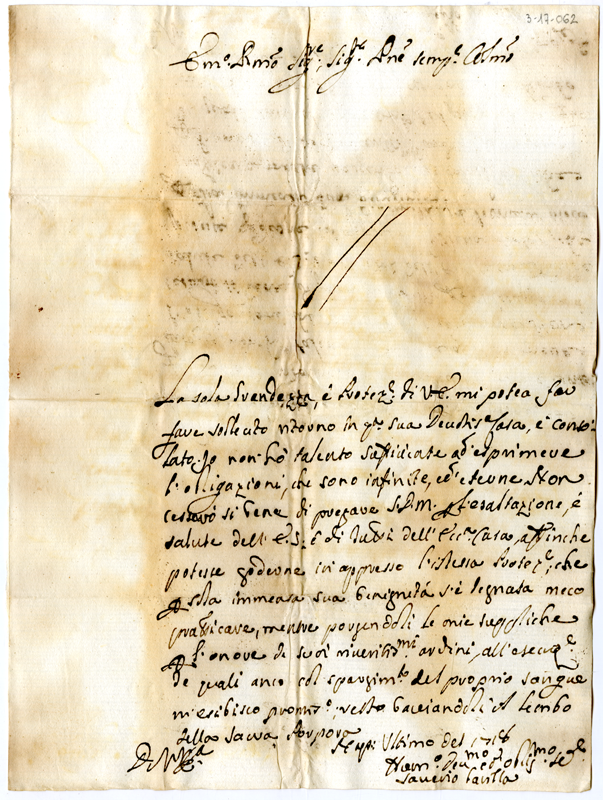 3-17-062
Em.º Rmō Sig.re, Sig.r Pne semp.e Colmō
La sola Grandezza, é Protez.e di V.E. mi potea far
fare sollecito ritorno in q.ta sua Devotis.a Casa, é conso-
lato. Jo non hó talento sufficiente ad esprimere
l'obligazioni, che sono infinite, ed eterne. Non
cesseró si bene di pregare S.D.M. p l'esaltazione, é
salute dell'E.S. é di tutti dell'Ecc.ma Casa, affinche
potesse goderne in appresso l'istessa Protez.e, che
p sola immensa sua benignitá s'é degnata meco
pratticare, mentre porgendoli le mie suppliche
p l'onore de suoi riveritis.mi ordini, all'esecuz.e
de quali anco col spargim.to del proprio sangue
m'esibisco pronto, resto baciandoli il lembo
della Sacra Porpora
Ultimo del
Di V.E.a
Saverio